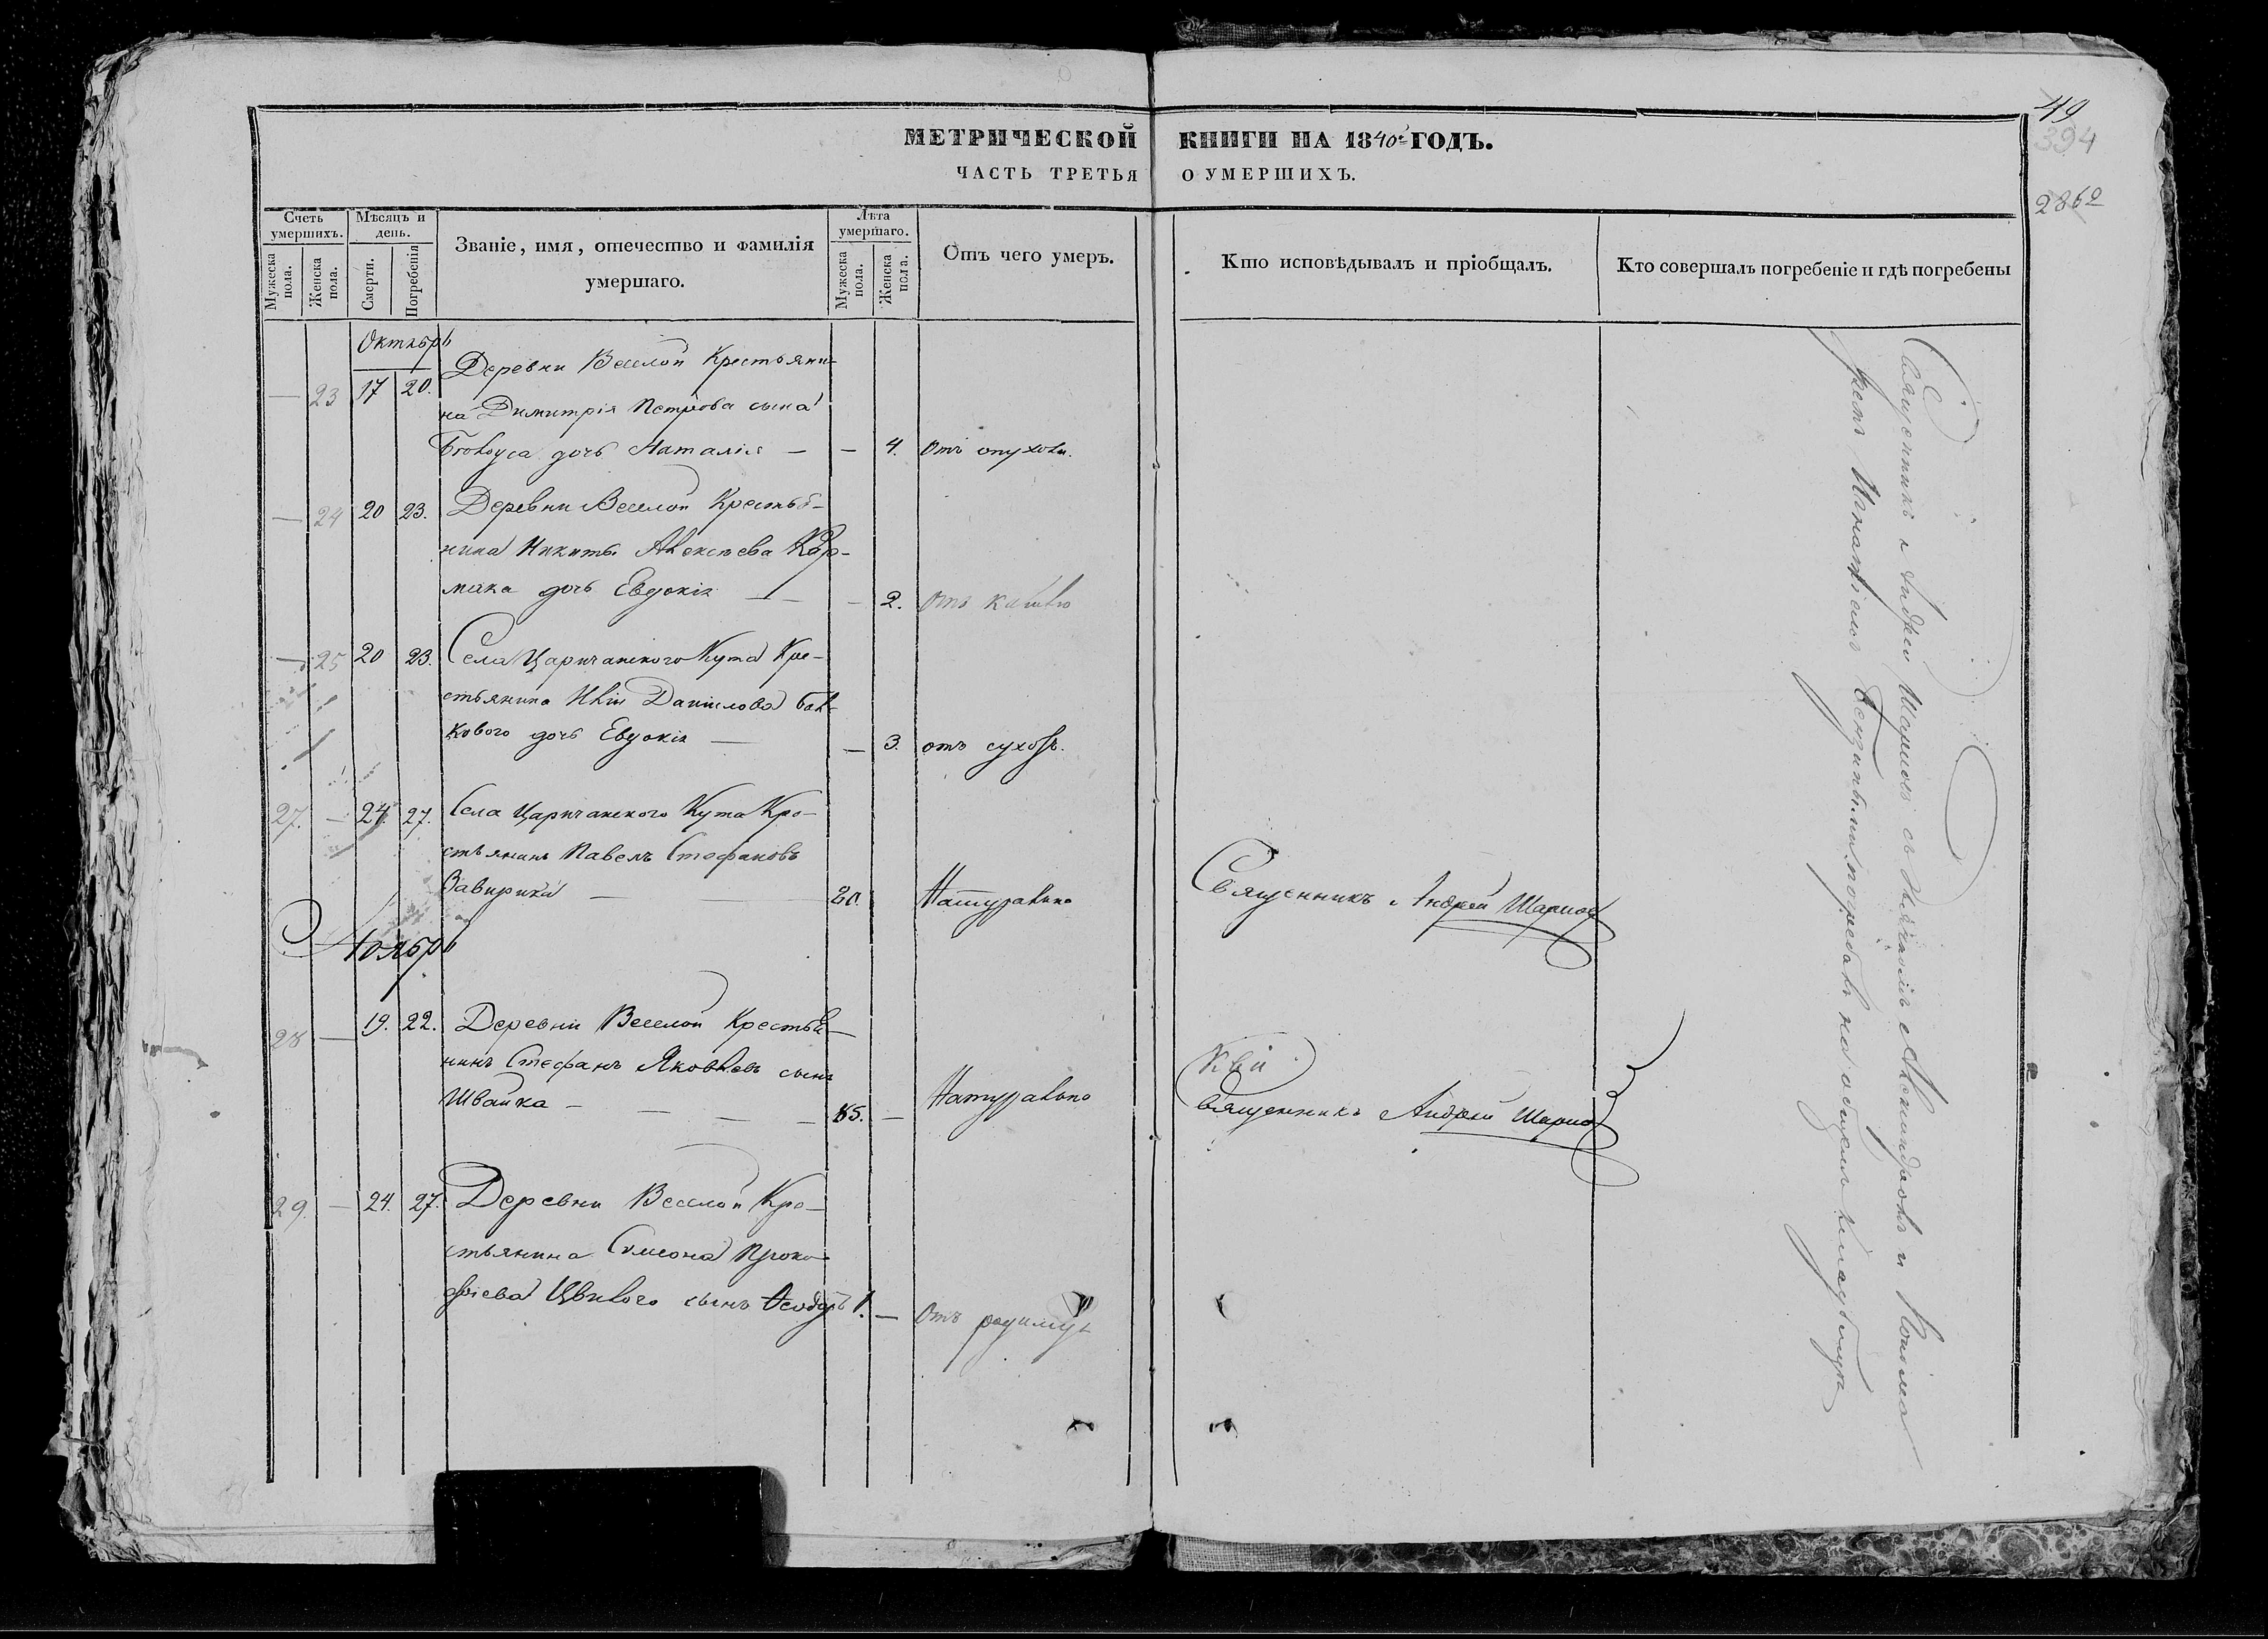 49
394
2860
МЕТРИЧЕСКОЙ КНИГИ НА 1840й ГОДЪ.
ЧАСТЬ ТРЕТЬЯ О УМЕРШИХЪ.
Счетъ умершихъ.
Мужеска пола.
Женска пола.
Мѣсяцъ и день.
Смерти.
Погребенія
Званіе, имя, отечество и фамилія
умершаго.
Лѣта умершаго.
Мужеска пола.
Женска пола.
Отъ чего умеръ.
Кто исповѣдывалъ и пріобщалъ.
Кто совершалъ погребеніе и гдѣ погребены
Октябрь
— 23 17 20. Деревни Веселой Крестьяни-
на Димитрія Петрова сына
дочь Наталія — — 4. отъ опухоли.
— 24 20 23. Деревни Веселой Крестья-
нина Никиты Алексѣева Кор-
мака дочь Евдокія — — 2. Отъ кашлю
— 25 20 23. Села Царичанского Кута Кре-
стьянина Данилова
дочь Евдокія — — 3. отъ сухотъ.
27. — 24. 27. Села Царичанского Кута Кре-
стьянинъ Павелъ Стефановъ
— — 20. Натурально Священникъ Андрей
Ноябрь
28 — 19. 22. Деревни Веселой Крестья-
нинъ Стефанъ Яковлевъ сынъ
Швайка — — — — 85. — Натурально Священникъ Андрей
29. — 24. 27. Деревни Веселой Кре-
стьянина Симеона Проко-
фіева сынъ Ѳеодоръ 1. — Отъ родимца
Священникъ Андрей съ Дячкомъ Александромъ и
Игнатіемъ погребалъ на общемъ кладбищѣ